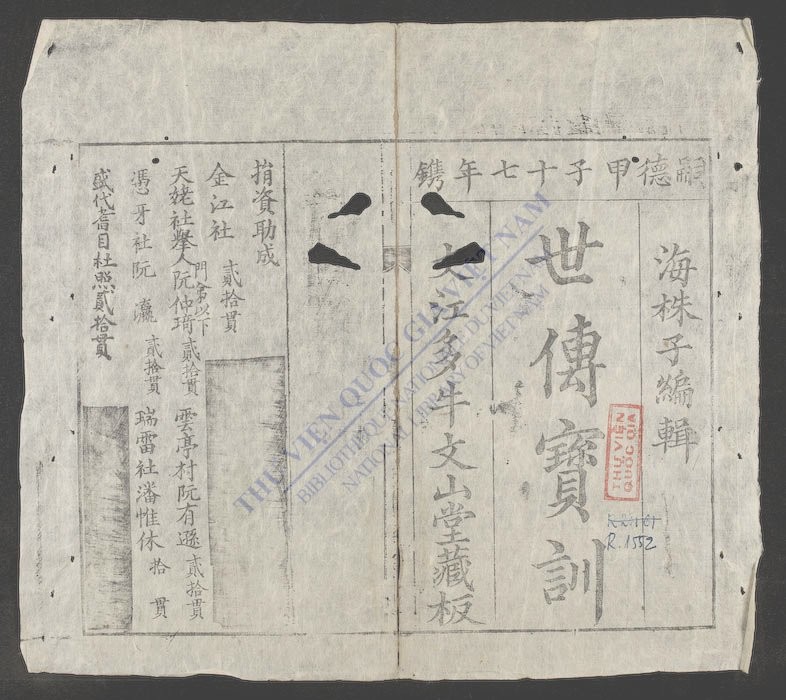 嗣德甲子十七年鐫
海株子編輯
世傳寶訓
大江多牛文山堂藏板
捐資助成
金江社 貳拾貫
門弟以下
天姥社舉人阮仲琦貳拾貫 雲亭村阮有遜貳拾貫
憑牙社阮瀛 貳拾貫 瑞雷社潘惟休 拾貫
盛代耆目杜照貳拾貫
THƯ VIỆN QUỐC GIA VIỆT NAM
BIBLIOTHÈQUE NATIONALE DU VIETNAM
NATIONAL LIBRARY OF VIETNAM
THƯ VIỆN
QUỐC GIA
R.1552